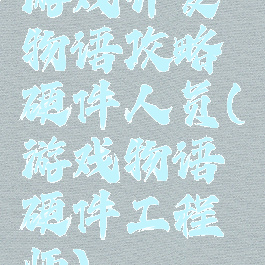 游戏开发
物语攻略
硬件人员(
游戏物语
硬件工程
师)